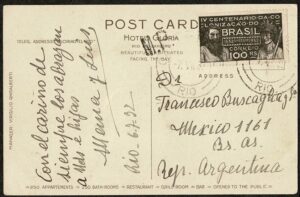 POST CARD
HOTEL GLORIA
RIO DE JANEIRO
BEAUTIFULLY SITUATED
FACING THE BAY
ADDRESS
IV CENTENARIO DA CO
LONIZAÇÃO DO
BRASIL
CORREIO
100 RS
RIO
MANAGER: VIRGILIO
Con el cariño de
siempre los abrazan
a Uds. e hijas
Mema y Luis
Rio - 6.7.32
Sr.
Francisco Buscaglia
Mexico 1161
Bs. as.
Rep. Argentina
250 APPARTEMENTS - 250 BATH-ROOMS - RESTAURANT - GRILL-ROOM - BAR - OPENED TO THE PUBLIC